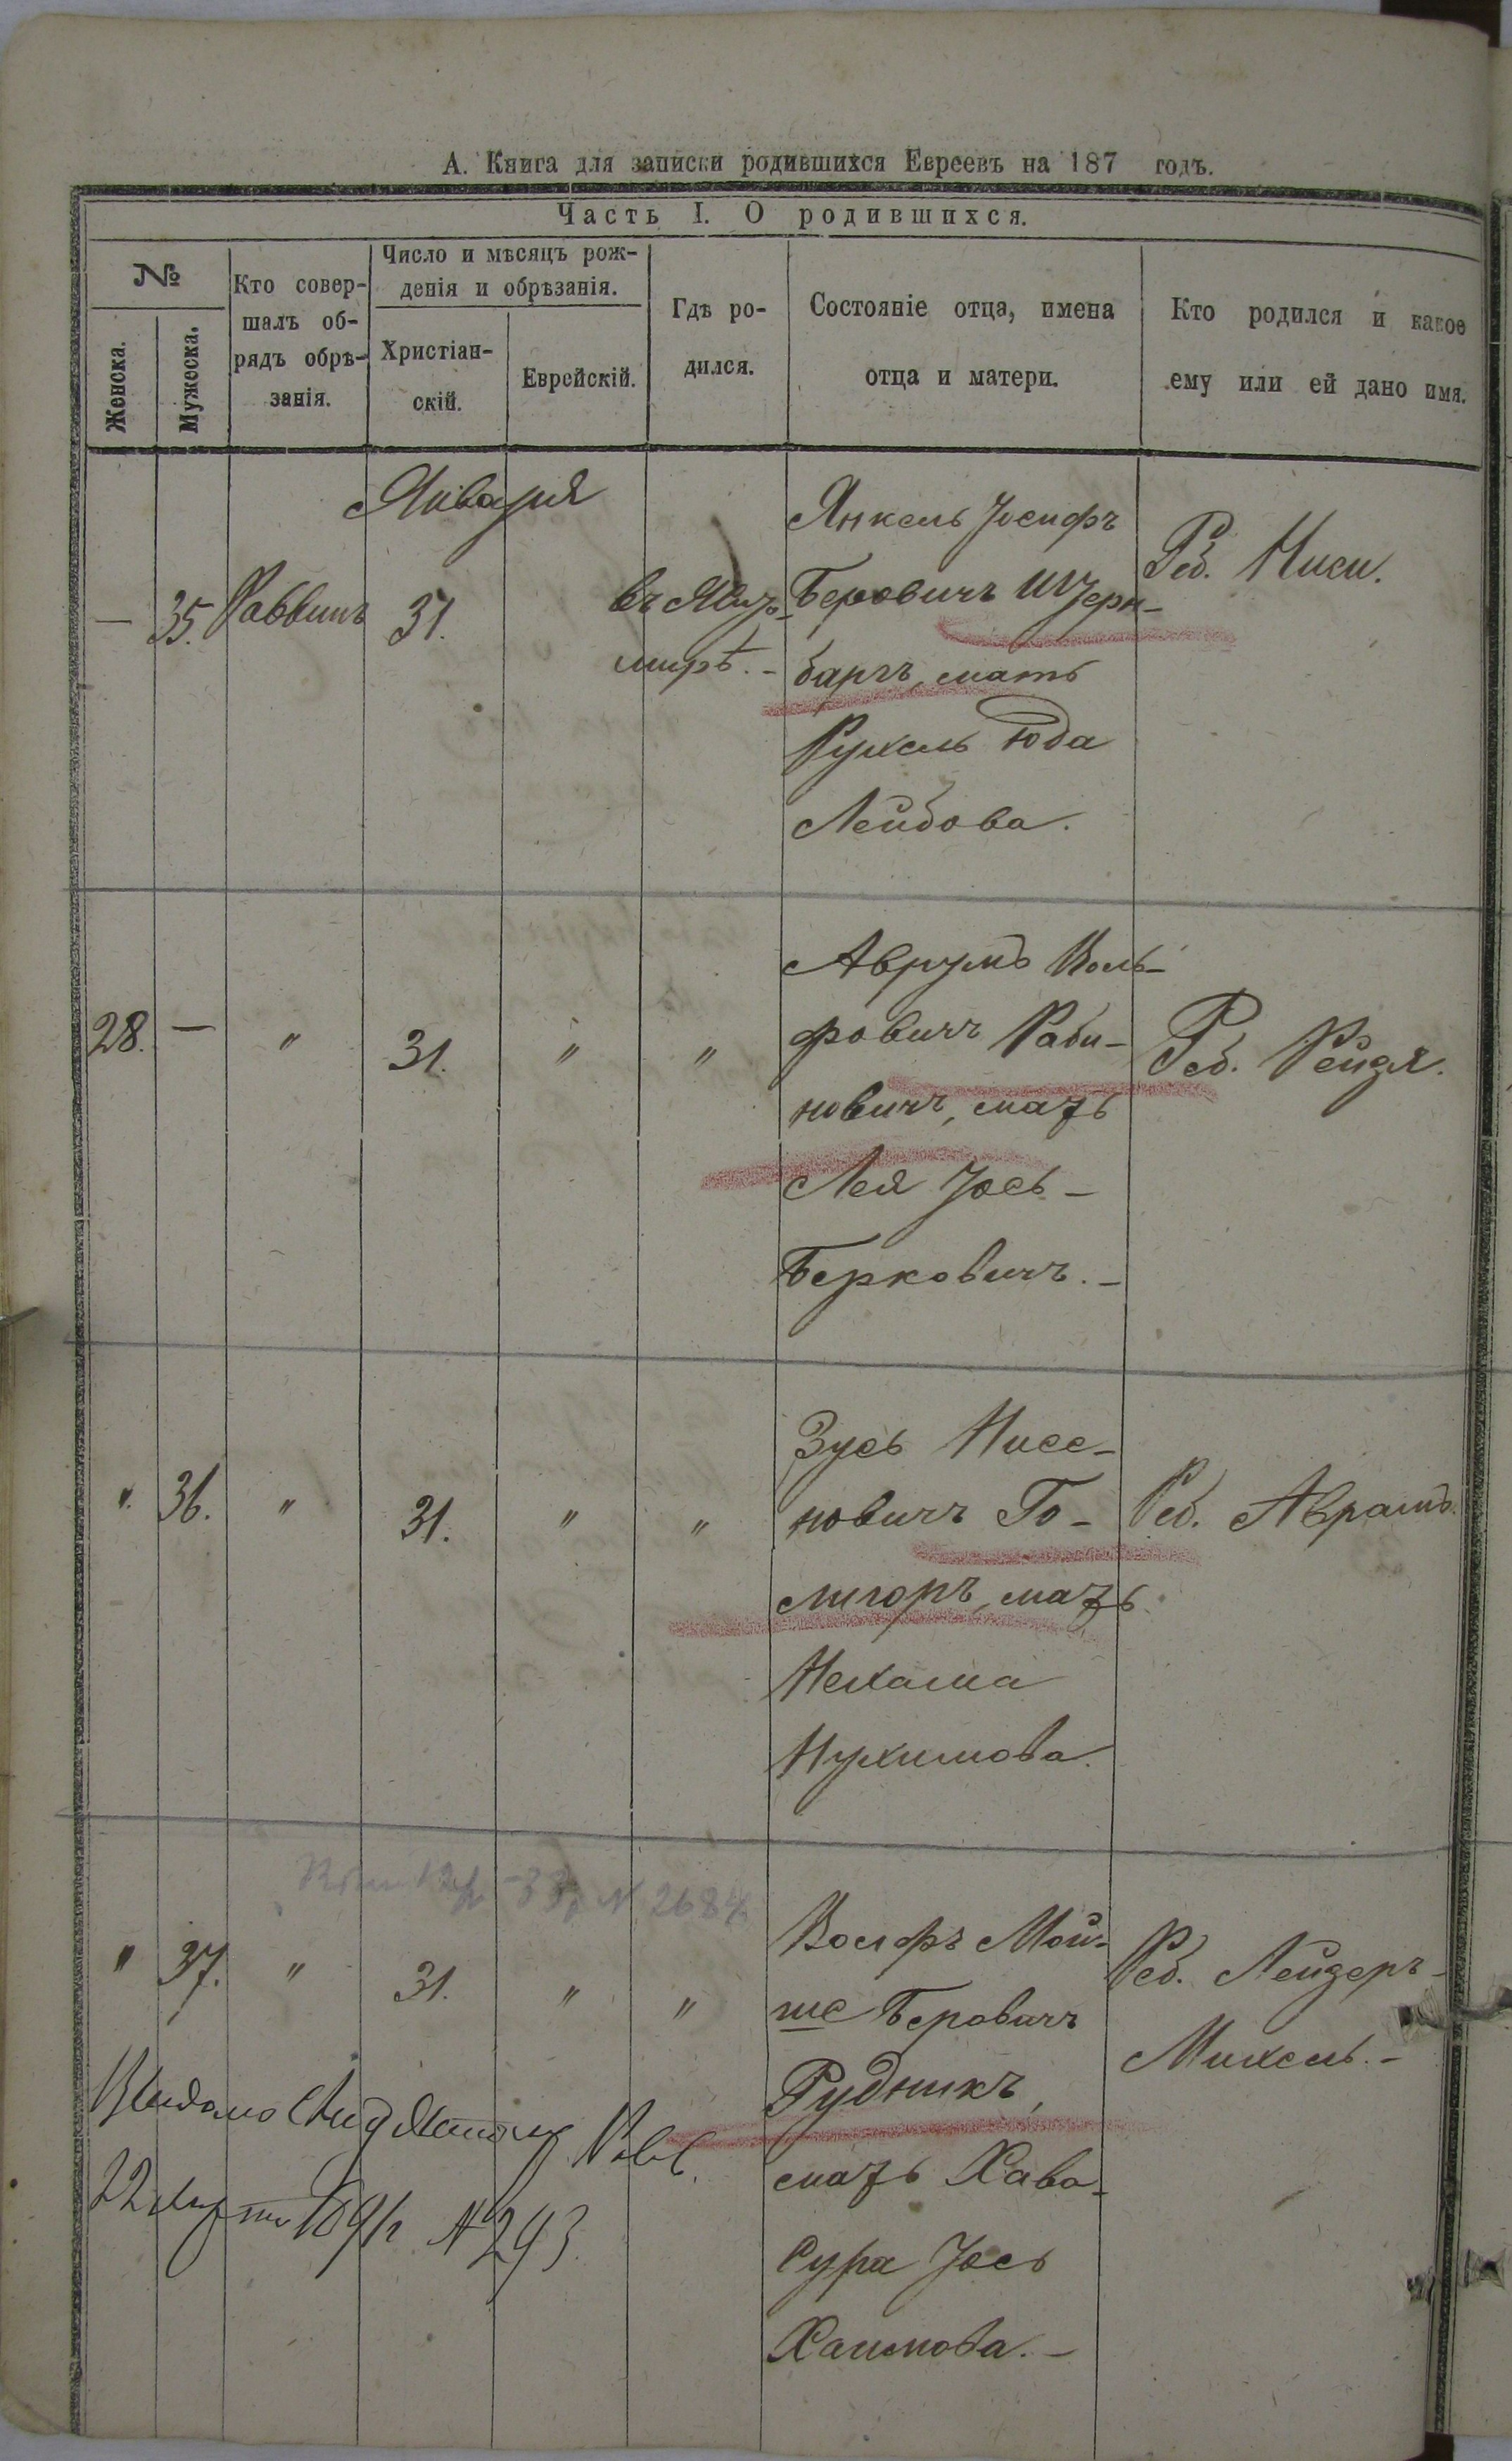 А. Книга для записки родившихся Евреевъ на 187 годъ.
Часть I. О родившихся.
№
Женска.
Мужеска.
Кто совер-
шалъ об-
рядъ обрѣ-
занія.
Число и мѣсяцъ рож-
денія и обрѣзанія.
Христіан-
скій.
Еврейскій.
Гдѣ ро-
дился.
Состояніе отца, имена
отца и матери.
Кто родился и какое
ему или ей дано имя.
Января
— 35. Раввинъ 31.
мирѣ.-
Янкель Іосифъ
Беровичъ Штерн-
баргъ, мать
Рухель Юда
Лейбова.
Реб. Ниси.
28. — " 31. " "
Аврумъ Воль-
фовичъ Раби-
новичъ, мать
Лея Іось-
Берковичъ.-
Реб. Рейзя.
". 36. " 31. " "
Зусь Нисе-
новичъ Го-
мать
Нехама
Нухимова.
Реб. Аврамъ.
№ 2684
" 37. " 31. " "
Волфъ Мой-
ше Беровичъ
Рудникъ,
мать Хава-
Сура Іось
Хаимова.-
Реб. Лейзеръ-
Михель.-
Выдано
22 Марта № 293.